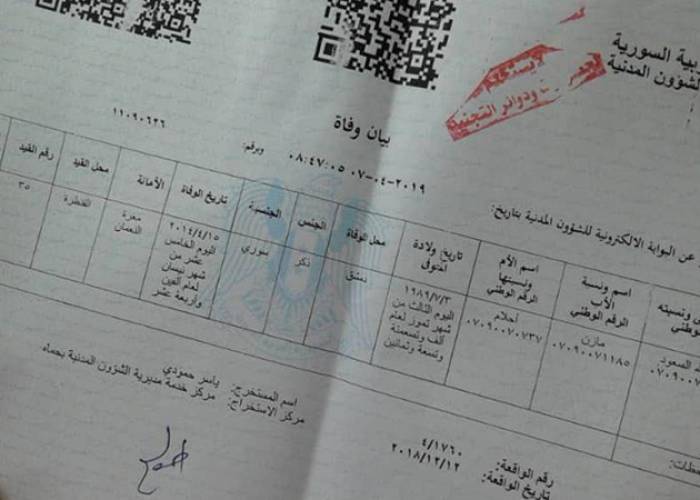 بية السورية
لشؤون المدنية
ودوائر التجنيد
بيان وفاة
عن البوابة الالكترونية للشؤون المدنية بتاريخ:
٠٨:٤٧:٠٥ ٠٧-٠٤-٢٠١٩
وبرقم:
١١٠٩٠٦٢٦
اسم ونسبة الأب الرقم الوطني
اسم الأم ونسبتها الرقم الوطني
تاريخ ولادة المتوفى
محل الوفاة
الجنس
الجنسية
تاريخ الوفاة
الأمانة
محل القيد
رقم القيد
السعود
مازن
٠٧٠٩٠٠٧١١٨٥
أحلام
٠٧٠٩٠٠٧٠٧٣٧
١٩٨٩/٧/٣
اليوم الثالث من
شهر تموز لعام
ألف وتسعمئة
وتسعة وثمانين
دمشق
ذكر
سوري
٢٠١٤/٤/١٥
اليوم الخامس
عشر من
شهر نيسان
لعام ألفين
وأربعة عشر
معرة
النعمان
القنطرة
٣٥
اسم المستخرج: ياسر حمودي
مركز الاستخراج: مركز خدمة مديرية الشؤون المدنية بحماه
رقم الواقعة: ٤/١٧٦٠
تاريخ الواقعة: ٢٠١٨/١٢/١٢